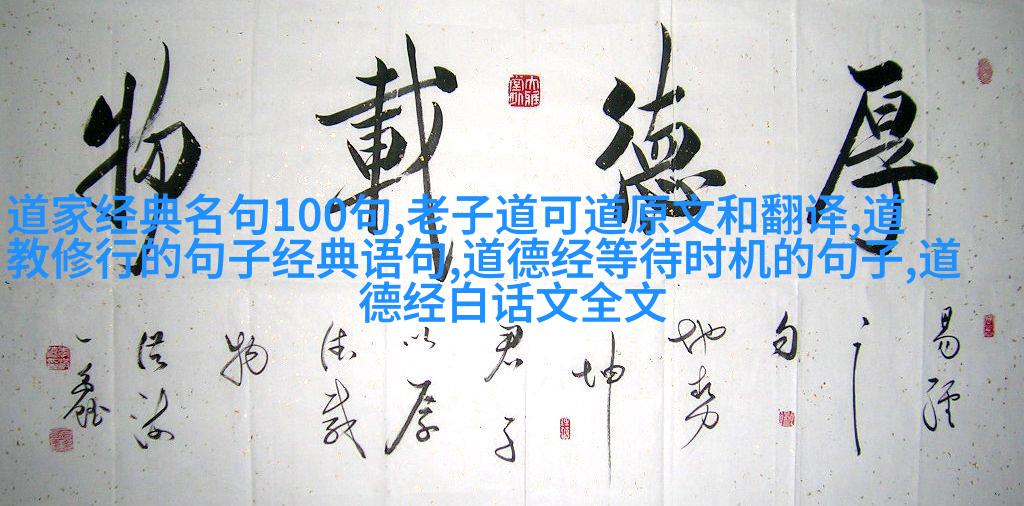 厚德載物
道家经典名句100句,老子道可道原文和翻译,道
教修行的句子经典语句,道德经等待时机的句子,道
德经白话文全文
易經
之
句
地勢
坤
君子
以厚
德載
物